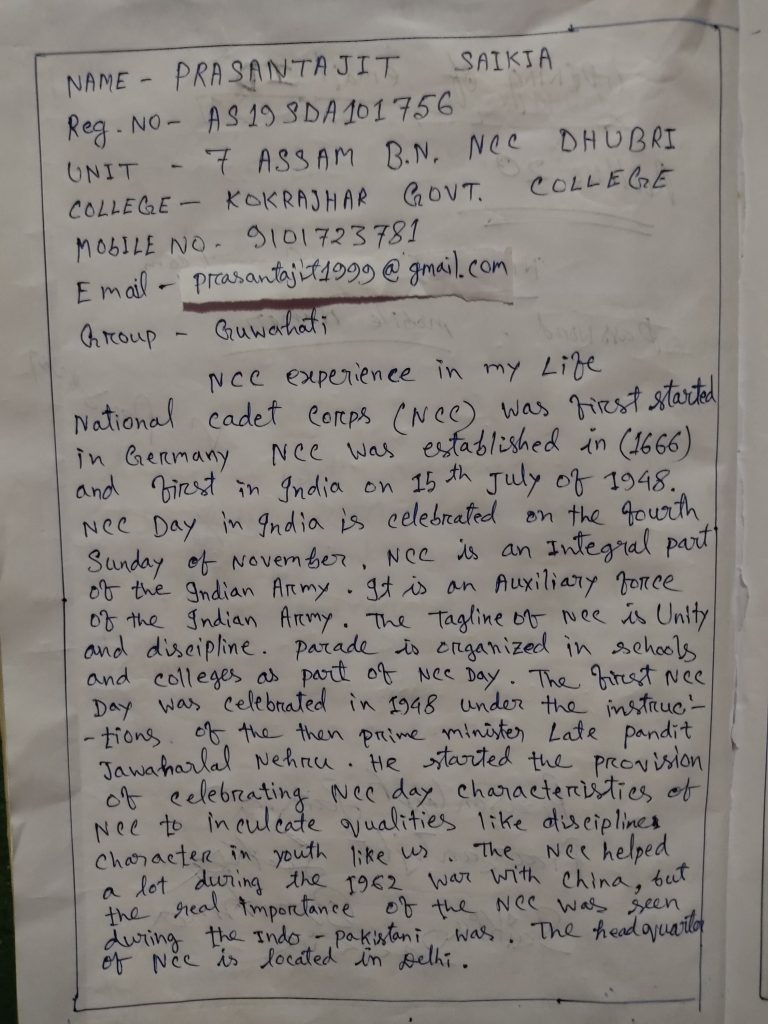 NAME - PRASANTAJIT SAIKIA
Reg. NO - AS19SDA101756
UNIT - 7 ASSAM B.N. NCC DHUBRI
COLLEGE - KOKRAJHAR GOVT. COLLEGE
MOBILE NO. 9101723781
Email - prasantajit1999@gmail.com
Group - Guwahati
NCC experience in my Life
National cadet corps (NCC) was first started
in Germany NCC was established in (1666)
and first in India on 15th July of 1948.
NCC Day in India is celebrated on the fourth
Sunday of November. NCC is an Integral part
of the Indian Army. It is an Auxiliary force
of the Indian Army. The Tagline of NCC is Unity
and discipline. parade is organized in schools
and colleges as part of NCC Day. The first NCC
Day was celebrated in 1948 under the instruc-
-tions of the then prime minister Late pandit
Jawaharlal Nehru. He started the provision
of celebrating NCC day characteristics of
NCC to inculcate qualities like discipline,
character in youth like us. The NCC helped
a lot during the 1962 war with China, but
the real importance of the NCC was seen
during the Indo-pakistani was. The headquarter
of NCC is located in Delhi.